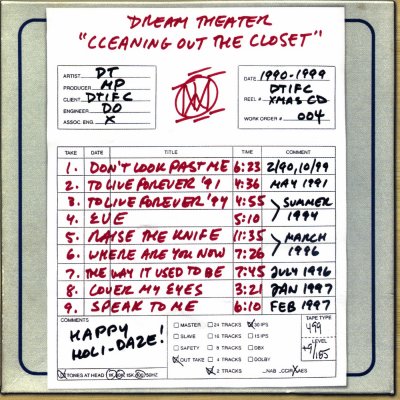 DREAM THEATER
"CLEANING OUT THE CLOSET"
ARTIST DT
PRODUCER MP
CLIENT DTIFC
ENGINEER DO
ASSOC ENG. X
DATE 1990-1999
REEL # DTIFC XMAS CD
WORK ORDER # 004
TAKE DATE TITLE TIME COMMENT
1. DON'T LOOK PAST ME 6:23 2/90, 10/99
2. TO LIVE FOREVER '91 4:36 MAY 1991
3. TO LIVE FOREVER '94 4:55 SUMMER
4. EVE 5:10 1994
5. RAISE THE KNIFE 11:35 MARCH
6. WHERE ARE YOU NOW 7:26 1996
7. THE WAY IT USED TO BE 7:45 JULY 1996
8. COVER MY EYES 3:21 JAN 1997
9. SPEAK TO ME 6:10 FEB 1997
COMMENTS
HAPPY
HOLI-DAZE!
MASTER 24 TRACKS 30 IPS
SLAVE 16 TRACKS 15 IPS
SAFETY 8 TRACKS DBX
OUT TAKE 4 TRACKS DOLBY
2 TRACKS NAB CCIR AES
TAPE TYPE
499
LEVEL
+9/185
TONES AT HEAD 1K 10K 15K 100 50HZ